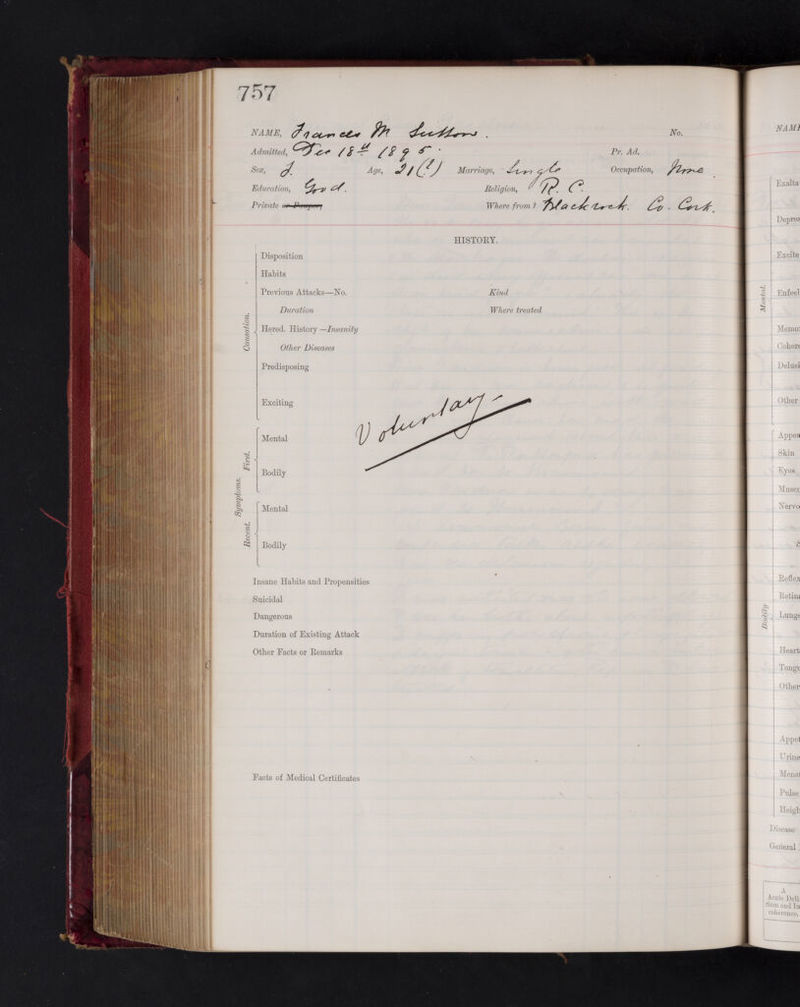 757
NAME, Frances M Sutton. No.
Admitted, Dec 18th 1895. Pr. Ad.
Sex, F. Age, 21(?) Marriage, Single Occupation, None
Education, Good. Religion, R. C.
Private or Pauper, Where from? Blackrock. Co. Cork.
HISTORY.
Causation.
Disposition
Habits
Previous Attacks—No. Kind
Duration Where treated
Hered. History—Insanity
Other Diseases
Predisposing
Exciting
Voluntary
Symptoms.
First.
Mental
Bodily
Recent.
Mental
Bodily
Insane Habits and Propensities
Suicidal
Dangerous
Duration of Existing Attack
Other Facts or Remarks
Facts of Medical Certificates
NAME
Mental.
Exalta
Depres
Excite
Enfeeb
Memor
Coher
Delusi
Other
Bodily
Appea
Skin
Eyes
Musc
Nervo
Reflex
Retin
Lungs
Heart
Tongu
Other
Appet
Urine
Menst
Pulse
Heigh
Disease
General
A
Acute Deli
rium and In
coherence,